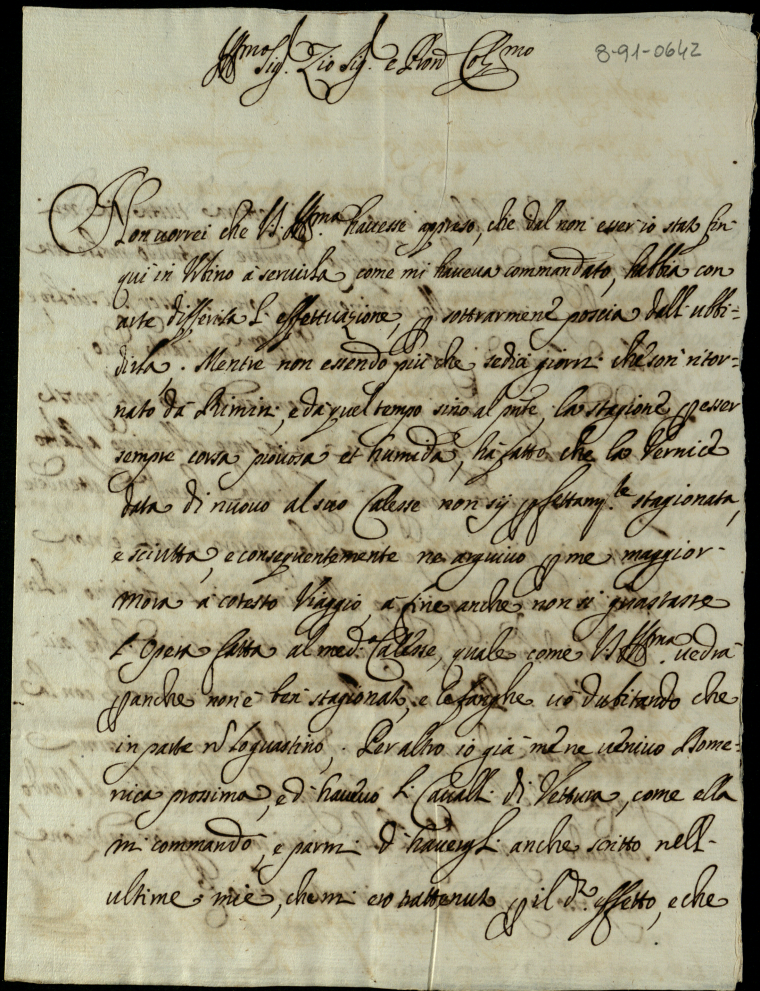 8-91-0642
Ill.mo Sig.r Zio Sig.r e Pron Col.mo
Non vorrei che V.S. Ill.ma havesse appreso, che dal non esser io stato fin
qui in Urbino à servirla, come mi haveva commandato, habbia con
arte differita l'effettuazione, p sottrarmene poscia dall'ubbi=
dirla. Mentre non essendo più che sedici giorni che son ritor=
nato da Rimini, e da quel tempo sino al pnte, la stagione p esser
sempre corsa piovosa et humida, hà fatto che la vernice
data di nuovo al suo Calesse non sij pfettam.te stagionata,
e sciutta, e conseguentemente ne arguivo p me maggior
mora à cotesto Viaggio, à fine anche non si guastasse
l'Opera fatta al med.o Calesse, quale come V.S. Ill.ma vedrà
p anche non è ben stagionato, e le fanghe vò dubitando che
in parte nō lo guastino. Per altro io già me ne venivo Dome=
nica prossima, ed havevo li Cavalli di Vettura, come ella
mi commandò, e parmi d'havergli anche scritto nell'
ultime mie, che mi ero trattenuto p il d.o effetto, e che